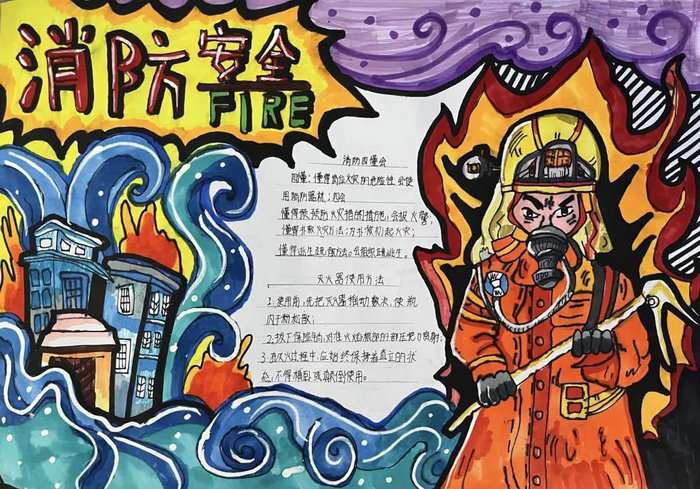 消防安全
FIRE
消防四懂会
四懂：懂得岗位火灾的危险性 会使
用消防器材；四会
懂得预防火灾措的措施，会报火警，
懂得扑救火灾方法；方扑救初起火灾；
懂得逃生疏散方法；会组织疏逃生。
灭火器使用方法
1.使用前，先把灭火器推动数次，使瓶
内干粉松散；
2.拔下保险销，对准火焰根部的部压把力喷射
3.在灭火过程中，应始终保持着直立的状
态，不得横卧或颠倒使用。